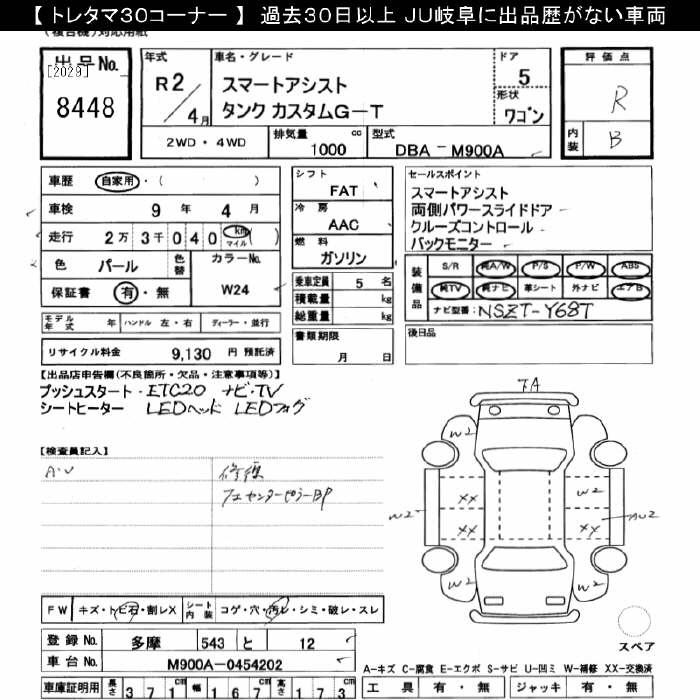 【 トレタマ30コーナー 】 過去30日以上 JU岐阜に出品歴がない車両
(複合機)対応用紙
出品No.
[2029]
8448
年式
R2/4月
車名・グレード
スマートアシスト
タンク カスタムG-T
ドア
5
形状
ワゴン
評価点
R
内装
B
2WD・4WD
排気量
1000 cc
型式
DBA - M900A
車歴 自家用・( )
車検 9年 4月
走行 2万3千040 km マイル ( )
色 パール 色替
カラーNo.
W24
保証書 有・無
モデル年式 年 ハンドル 左・右 ディーラー・並行
リサイクル料金 9,130 円 預託済
シフト
FAT
冷房
AAC
燃料
ガソリン
乗車定員 5 名
積載量 kg
総重量 kg
書類期限
月 日
セールスポイント
スマートアシスト
両側パワースライドドア
クルーズコントロール
バックモニター
装備品
S/R 純A/W P/S P/W ABS
純TV 純ナビ 革シート 外ナビ エアB
ナビ型番: NSZT-Y68T
後日品
【出品店申告欄(不良箇所・欠品・注意事項等)】
プッシュスタート・ETC20 ナビ・TV
シートヒーター LEDヘッド LEDフォグ
【検査員記入】
修復
フエ センターピラーBP
FA
W2
W2
XX
W2
W2
XX
XX
AU2
W2
W2
FW キズ・トビ石・割レX シート内装 コゲ・穴・汚レ・シミ・破レ・スレ
登録No. 多摩 543 と 12
車台No. M900A-0454202
スペア
A-キズ C-腐食 E-エクボ S-サビ U-凹ミ W-補修 XX-交換済
車庫証明用 長さ 371cm 幅 167cm 高さ 173cm
工具 有・無 ジャッキ 有・無